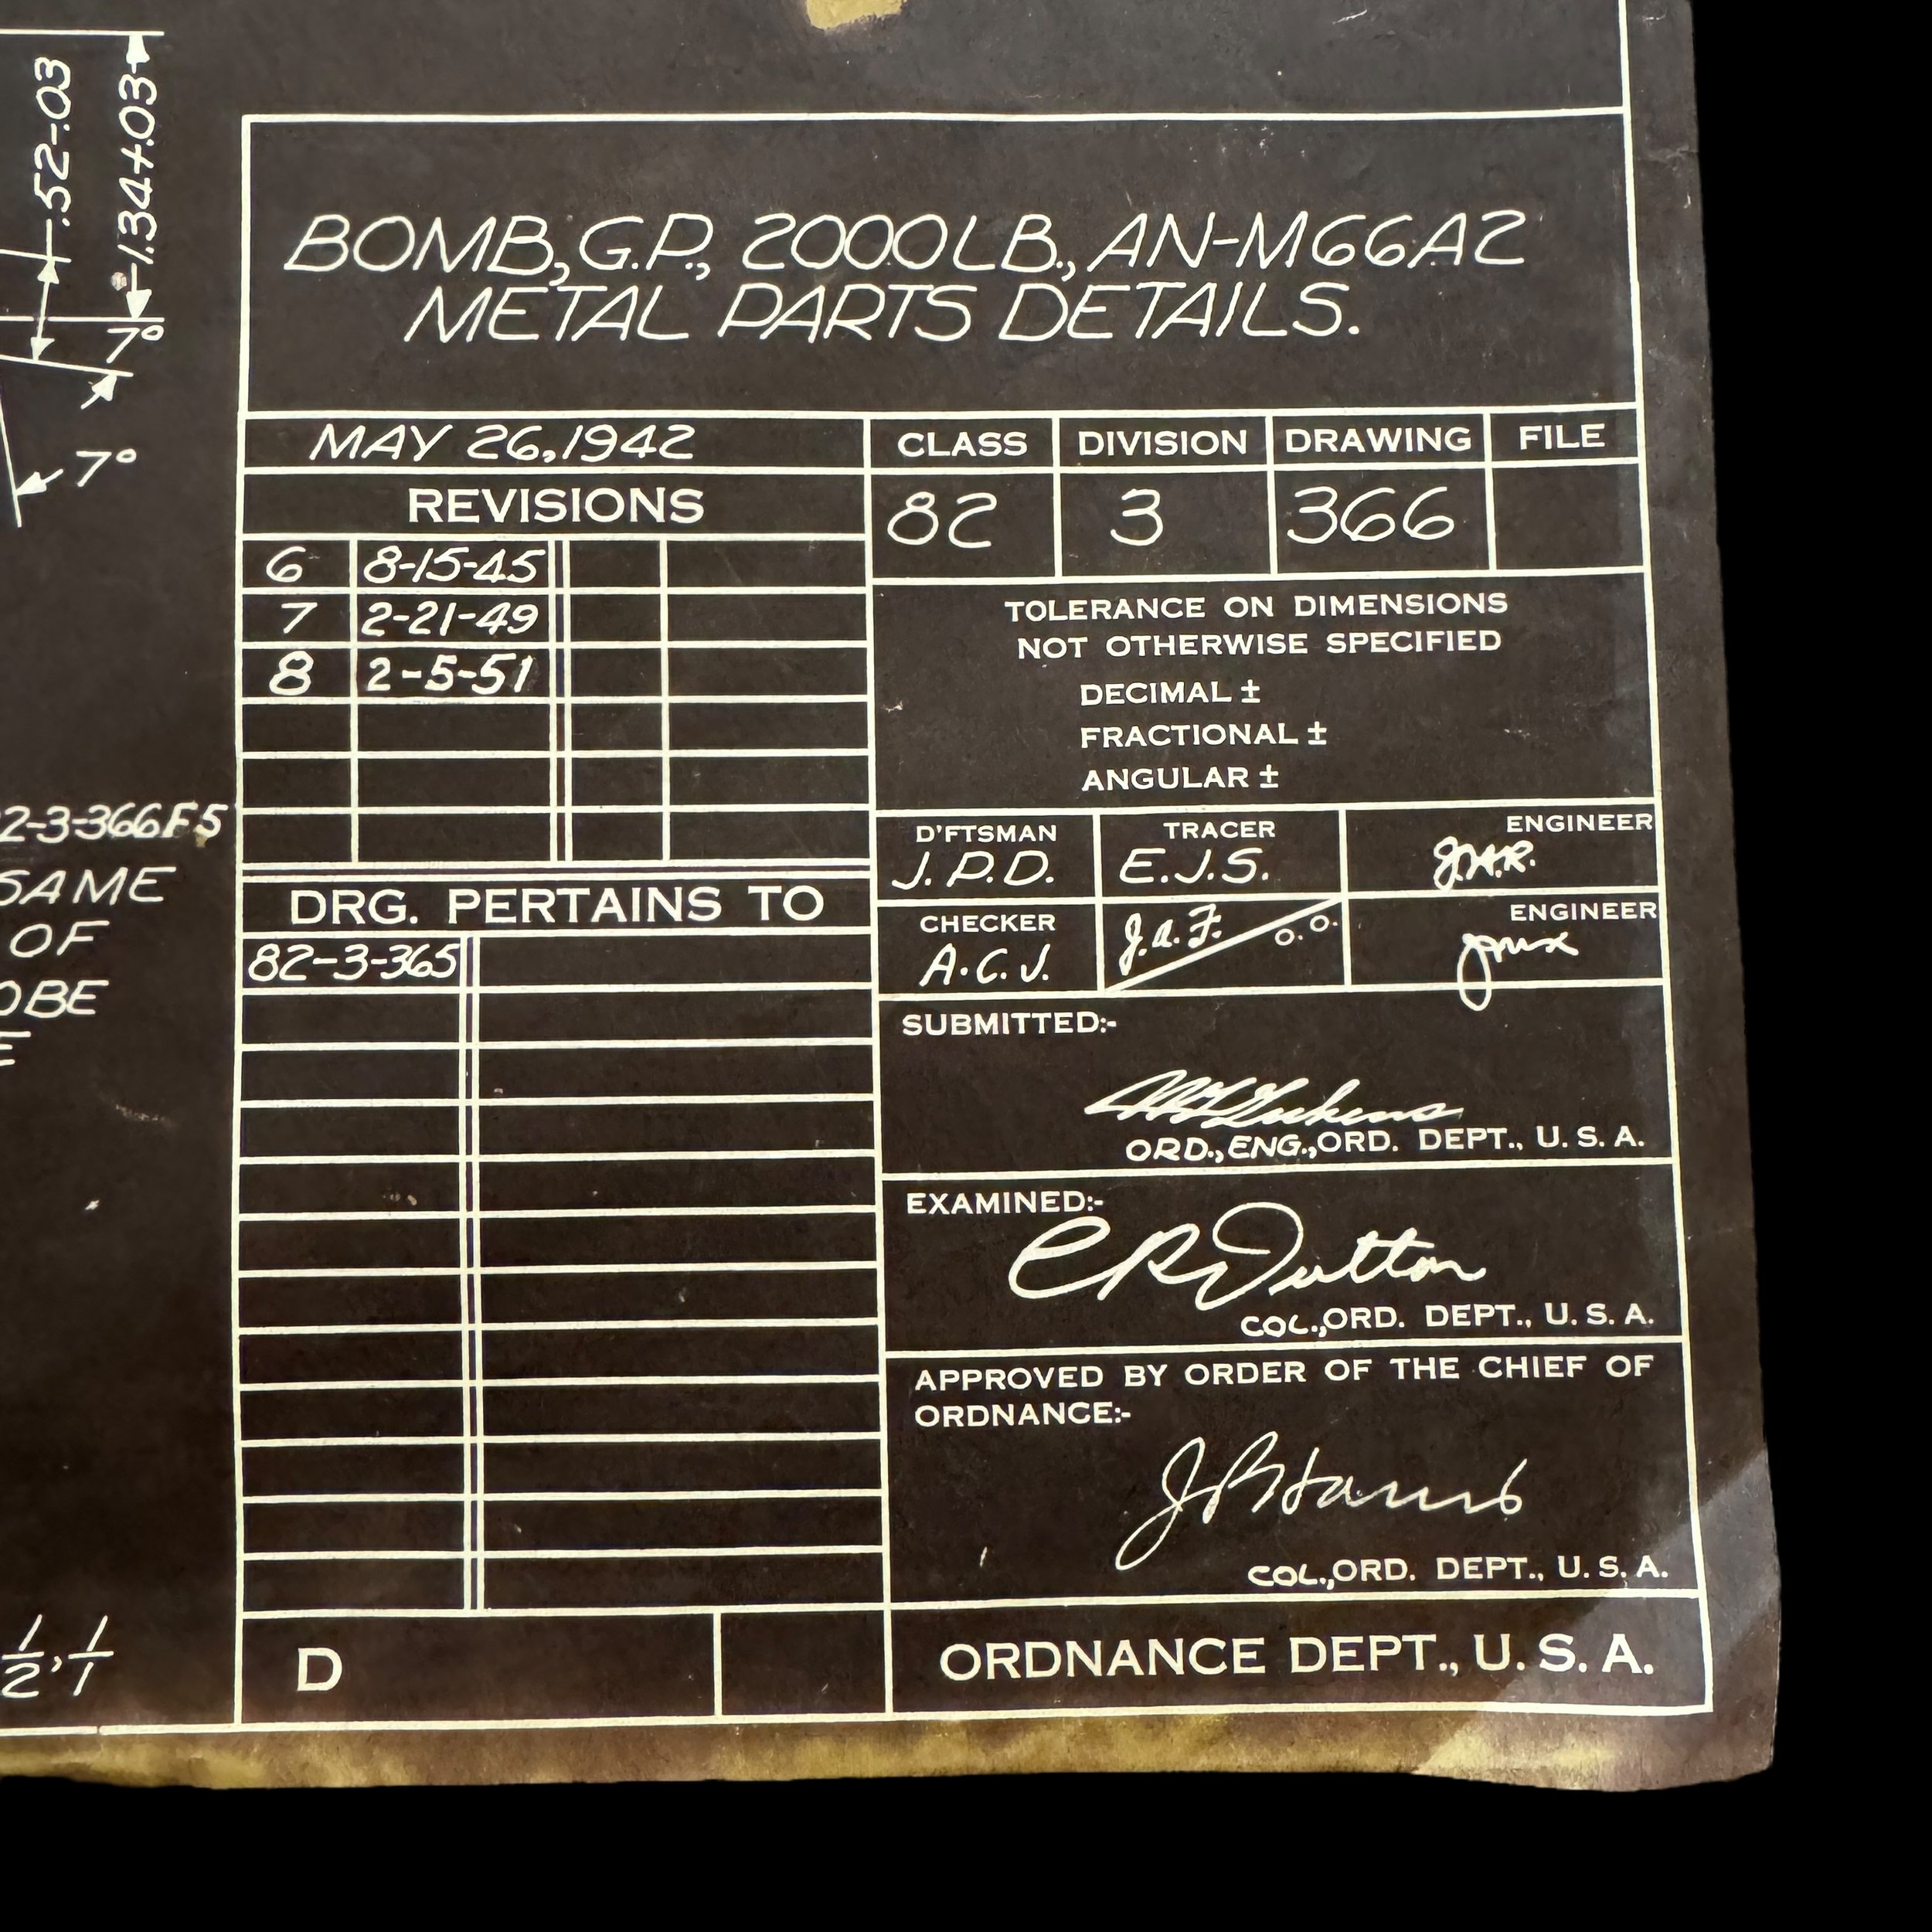 .52-.03
1.344+.03
7°
7°
2-3-366F5
SAME
OF
OBE
E
1/2, 1/1
BOMB, G.P., 2000LB., AN-M66A2
METAL PARTS DETAILS.
MAY 26, 1942
REVISIONS
6 8-15-45
7 2-21-49
8 2-5-51
DRG. PERTAINS TO
82-3-365
D
CLASS DIVISION DRAWING FILE
82 3 366
TOLERANCE ON DIMENSIONS
NOT OTHERWISE SPECIFIED
DECIMAL ±
FRACTIONAL ±
ANGULAR ±
D'FTSMAN TRACER ENGINEER
J.P.D. E.J.S.
CHECKER J.A.F. O.O. ENGINEER
A.C.J.
SUBMITTED:-
ORD., ENG., ORD. DEPT., U. S. A.
EXAMINED:-
C R Dutton
COL., ORD. DEPT., U. S. A.
APPROVED BY ORDER OF THE CHIEF OF
ORDNANCE:-
COL., ORD. DEPT., U. S. A.
ORDNANCE DEPT., U. S. A.